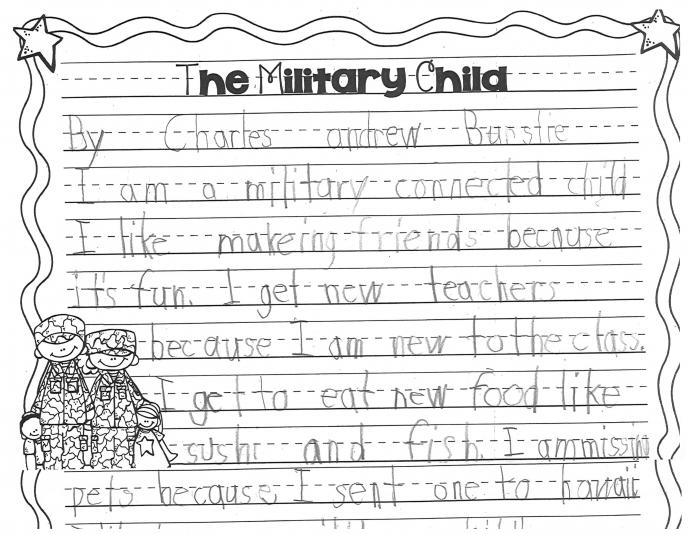 The Military Child
By Charles andrew
I am a military connected child
I like makeing friends because
it's fun. I get new teachers
because I am new to the class.
I get to eat new food like
sushi and fish. I am missin
pets because I sent one to hawaii